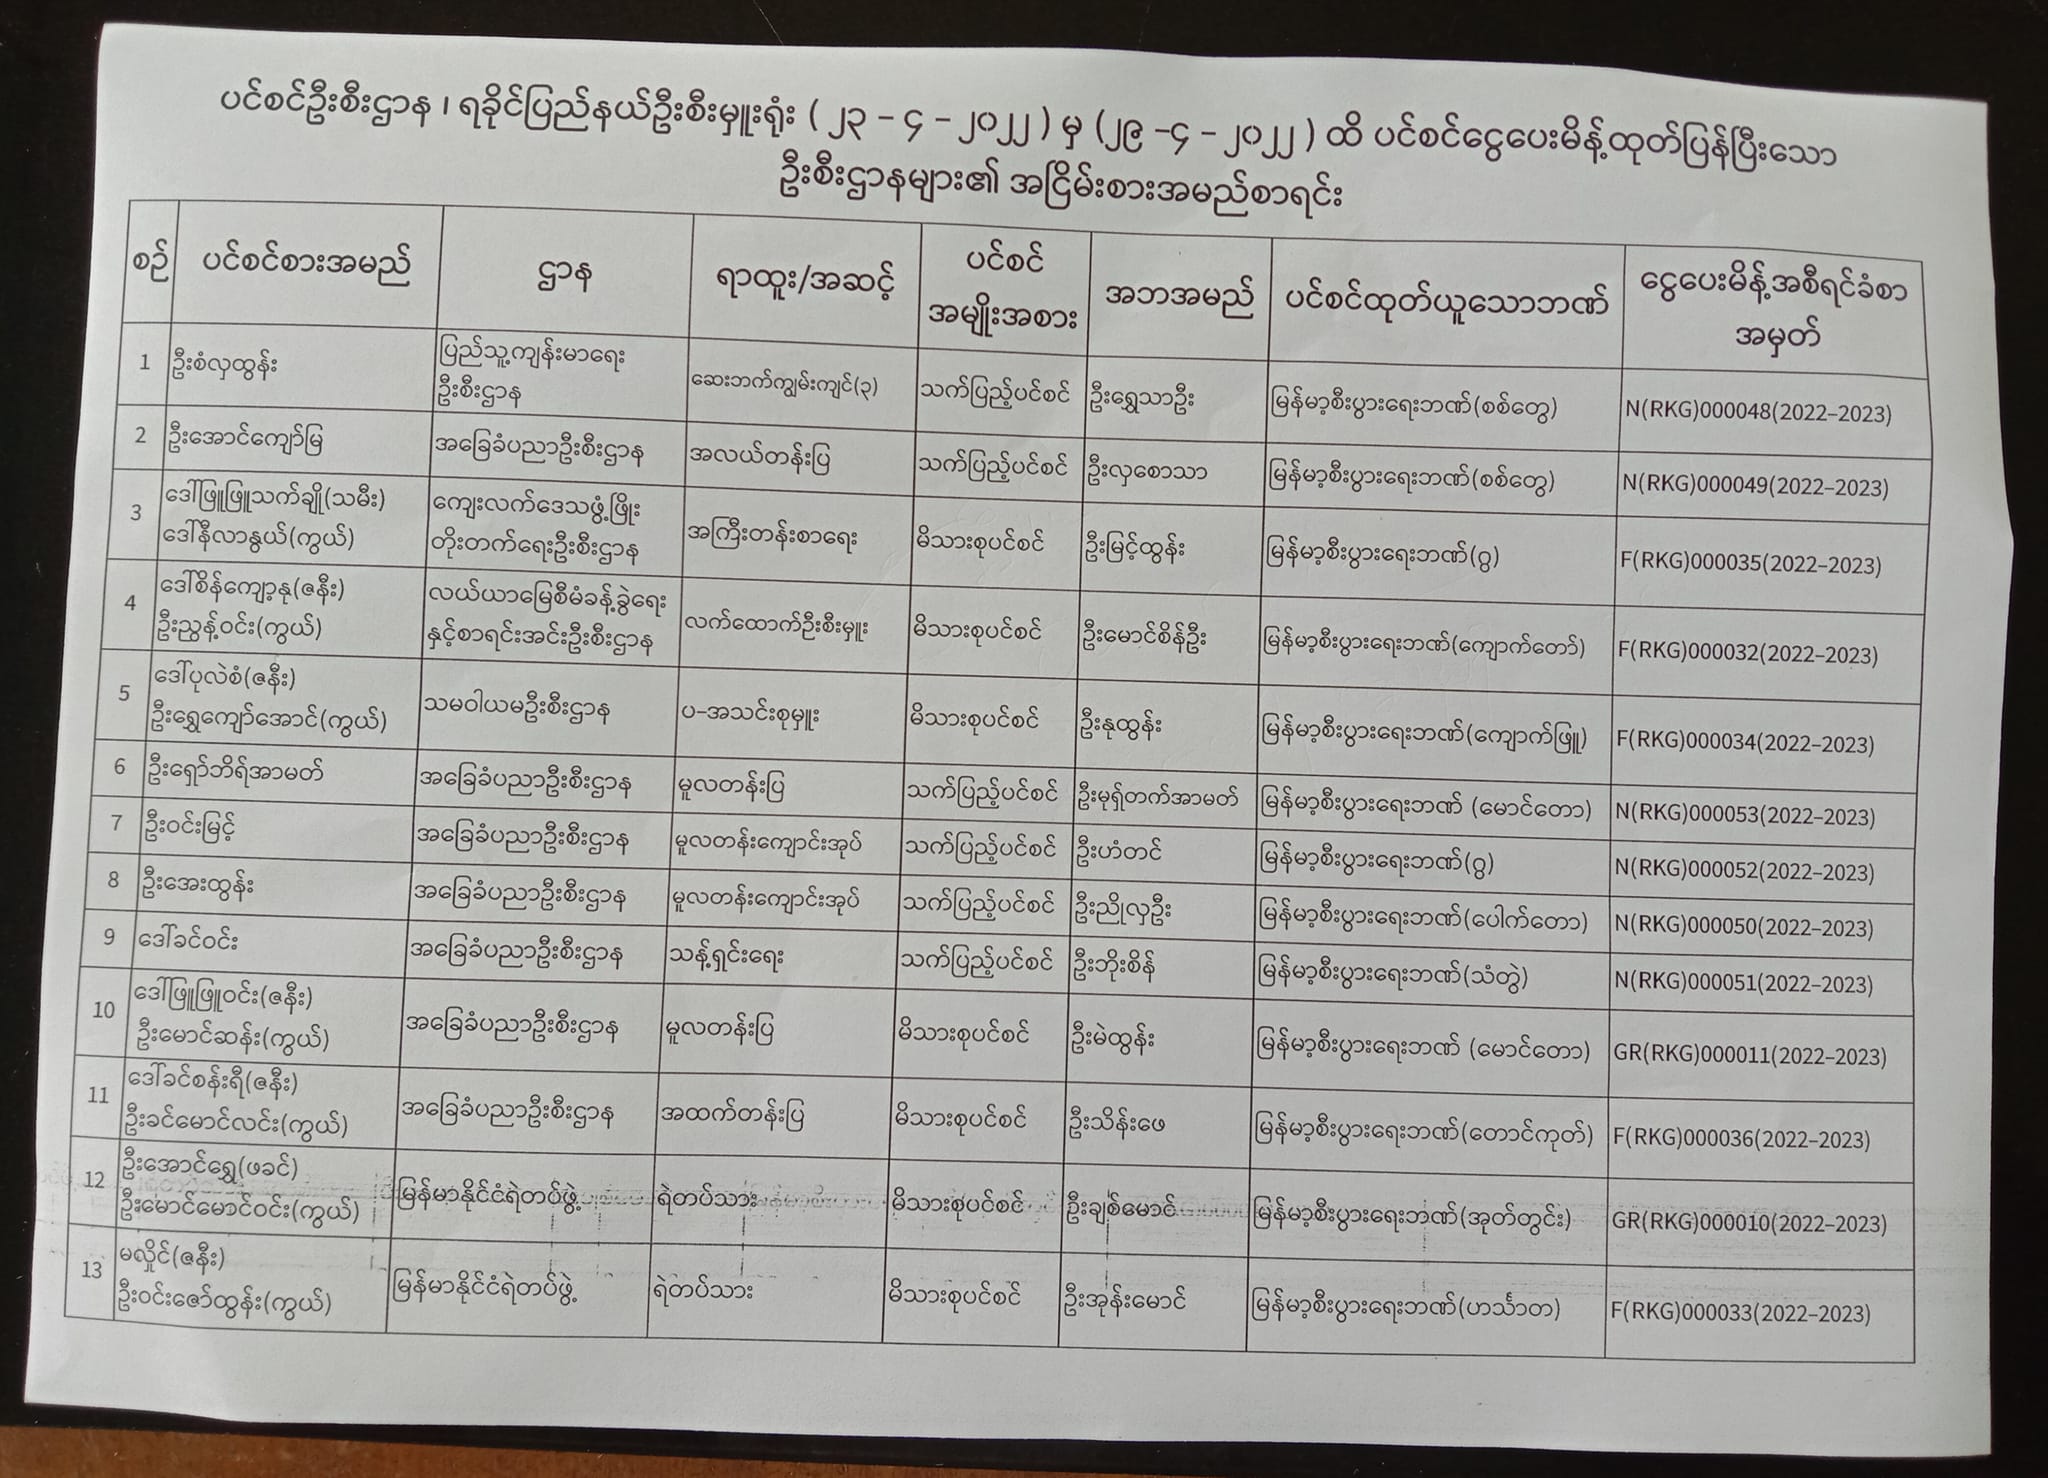 ပင်စင်ဦးစီးဌာန ၊ ရခိုင်ပြည်နယ်ဦးစီးမှူးရုံး ( ၂၃ - ၄ - ၂၀၂၂ ) မှ (၂၉ -၄ - ၂၀၂၂ ) ထိ ပင်စင်ငွေပေးမိန့်ထုတ်ပြန်ပြီးသော
ဦးစီးဌာနများ၏ အငြိမ်းစားအမည်စာရင်း
စဉ် ပင်စင်စားအမည် ဌာန ရာထူး/အဆင့် ပင်စင် အမျိုးအစား အဘအမည် ပင်စင်ထုတ်ယူသောဘဏ် ငွေပေးမိန့်အစီရင်ခံစာ အမှတ်
1 ဦးစံလှထွန်း ပြည်သူ့ကျန်းမာရေး ဦးစီးဌာန ဆေးဘက်ကျွမ်းကျင်(၃) သက်ပြည့်ပင်စင် ဦးရွှေသာဦး မြန်မာ့စီးပွားရေးဘဏ်(စစ်တွေ) N(RKG)000048(2022-2023)
2 ဦးအောင်ကျော်မြ အခြေခံပညာဦးစီးဌာန အလယ်တန်းပြ သက်ပြည့်ပင်စင် ဦးလှစောသာ မြန်မာ့စီးပွားရေးဘဏ်(စစ်တွေ) N(RKG)000049(2022-2023)
3 ဒေါ်ဖြူဖြူသက်ချို(သမီး) ဒေါ်နီလာနွယ်(ကွယ်) ကျေးလက်ဒေသဖွံ့ဖြိုး တိုးတက်ရေးဦးစီးဌာန အကြီးတန်းစာရေး မိသားစုပင်စင် ဦးမြင့်ထွန်း မြန်မာ့စီးပွားရေးဘဏ်(ဂွ) F(RKG)000035(2022-2023)
4 ဒေါ်စိန်ကျော့နု(ဇနီး) ဦးညွန့်ဝင်း(ကွယ်) လယ်ယာမြေစီမံခန့်ခွဲရေး နှင့်စာရင်းအင်းဦးစီးဌာန လက်ထောက်ဦးစီးမှူး မိသားစုပင်စင် ဦးမောင်စိန်ဦး မြန်မာ့စီးပွားရေးဘဏ်(ကျောက်တော်) F(RKG)000032(2022-2023)
5 ဒေါ်ပုလဲစံ(ဇနီး) ဦးရွှေကျော်အောင်(ကွယ်) သမဝါယမဦးစီးဌာန ပ-အသင်းစုမှူး မိသားစုပင်စင် ဦးနုထွန်း မြန်မာ့စီးပွားရေးဘဏ်(ကျောက်ဖြူ) F(RKG)000034(2022-2023)
6 ဦးရှော်ဘိရ်အာမတ် အခြေခံပညာဦးစီးဌာန မူလတန်းပြ သက်ပြည့်ပင်စင် ဦးမုရှ်တက်အာမတ် မြန်မာ့စီးပွားရေးဘဏ် (မောင်တော) N(RKG)000053(2022-2023)
7 ဦးဝင်းမြင့် အခြေခံပညာဦးစီးဌာန မူလတန်းကျောင်းအုပ် သက်ပြည့်ပင်စင် ဦးဟံတင် မြန်မာ့စီးပွားရေးဘဏ်(ဂွ) N(RKG)000052(2022-2023)
8 ဦးအေးထွန်း အခြေခံပညာဦးစီးဌာန မူလတန်းကျောင်းအုပ် သက်ပြည့်ပင်စင် ဦးညိုလှဦး မြန်မာ့စီးပွားရေးဘဏ်(ပေါက်တော) N(RKG)000050(2022-2023)
9 ဒေါ်ခင်ဝင်း အခြေခံပညာဦးစီးဌာန သန့်ရှင်းရေး သက်ပြည့်ပင်စင် ဦးဘိုးစိန် မြန်မာ့စီးပွားရေးဘဏ်(သံတွဲ) N(RKG)000051(2022-2023)
10 ဒေါ်ဖြူဖြူဝင်း(ဇနီး) ဦးမောင်ဆန်း(ကွယ်) အခြေခံပညာဦးစီးဌာန မူလတန်းပြ မိသားစုပင်စင် ဦးမဲထွန်း မြန်မာ့စီးပွားရေးဘဏ် (မောင်တော) GR(RKG)000011(2022-2023)
11 ဒေါ်ခင်စန်းရီ(ဇနီး) ဦးခင်မောင်လင်း(ကွယ်) အခြေခံပညာဦးစီးဌာန အထက်တန်းပြ မိသားစုပင်စင် ဦးသိန်းဖေ မြန်မာ့စီးပွားရေးဘဏ်(တောင်ကုတ်) F(RKG)000036(2022-2023)
12 ဦးအောင်ရွှေ(ဖခင်) ဦးမောင်မောင်ဝင်း(ကွယ်) မြန်မာနိုင်ငံရဲတပ်ဖွဲ့ ရဲတပ်သား မိသားစုပင်စင် ဦးချစ်မောင် မြန်မာ့စီးပွားရေးဘဏ်(အုတ်တွင်း) GR(RKG)000010(2022-2023)
13 မလှိုင်(ဇနီး) ဦးဝင်းဇော်ထွန်း(ကွယ်) မြန်မာနိုင်ငံရဲတပ်ဖွဲ့ ရဲတပ်သား မိသားစုပင်စင် ဦးအုန်းမောင် မြန်မာ့စီးပွားရေးဘဏ်(ဟင်္သာတ) F(RKG)000033(2022-2023)